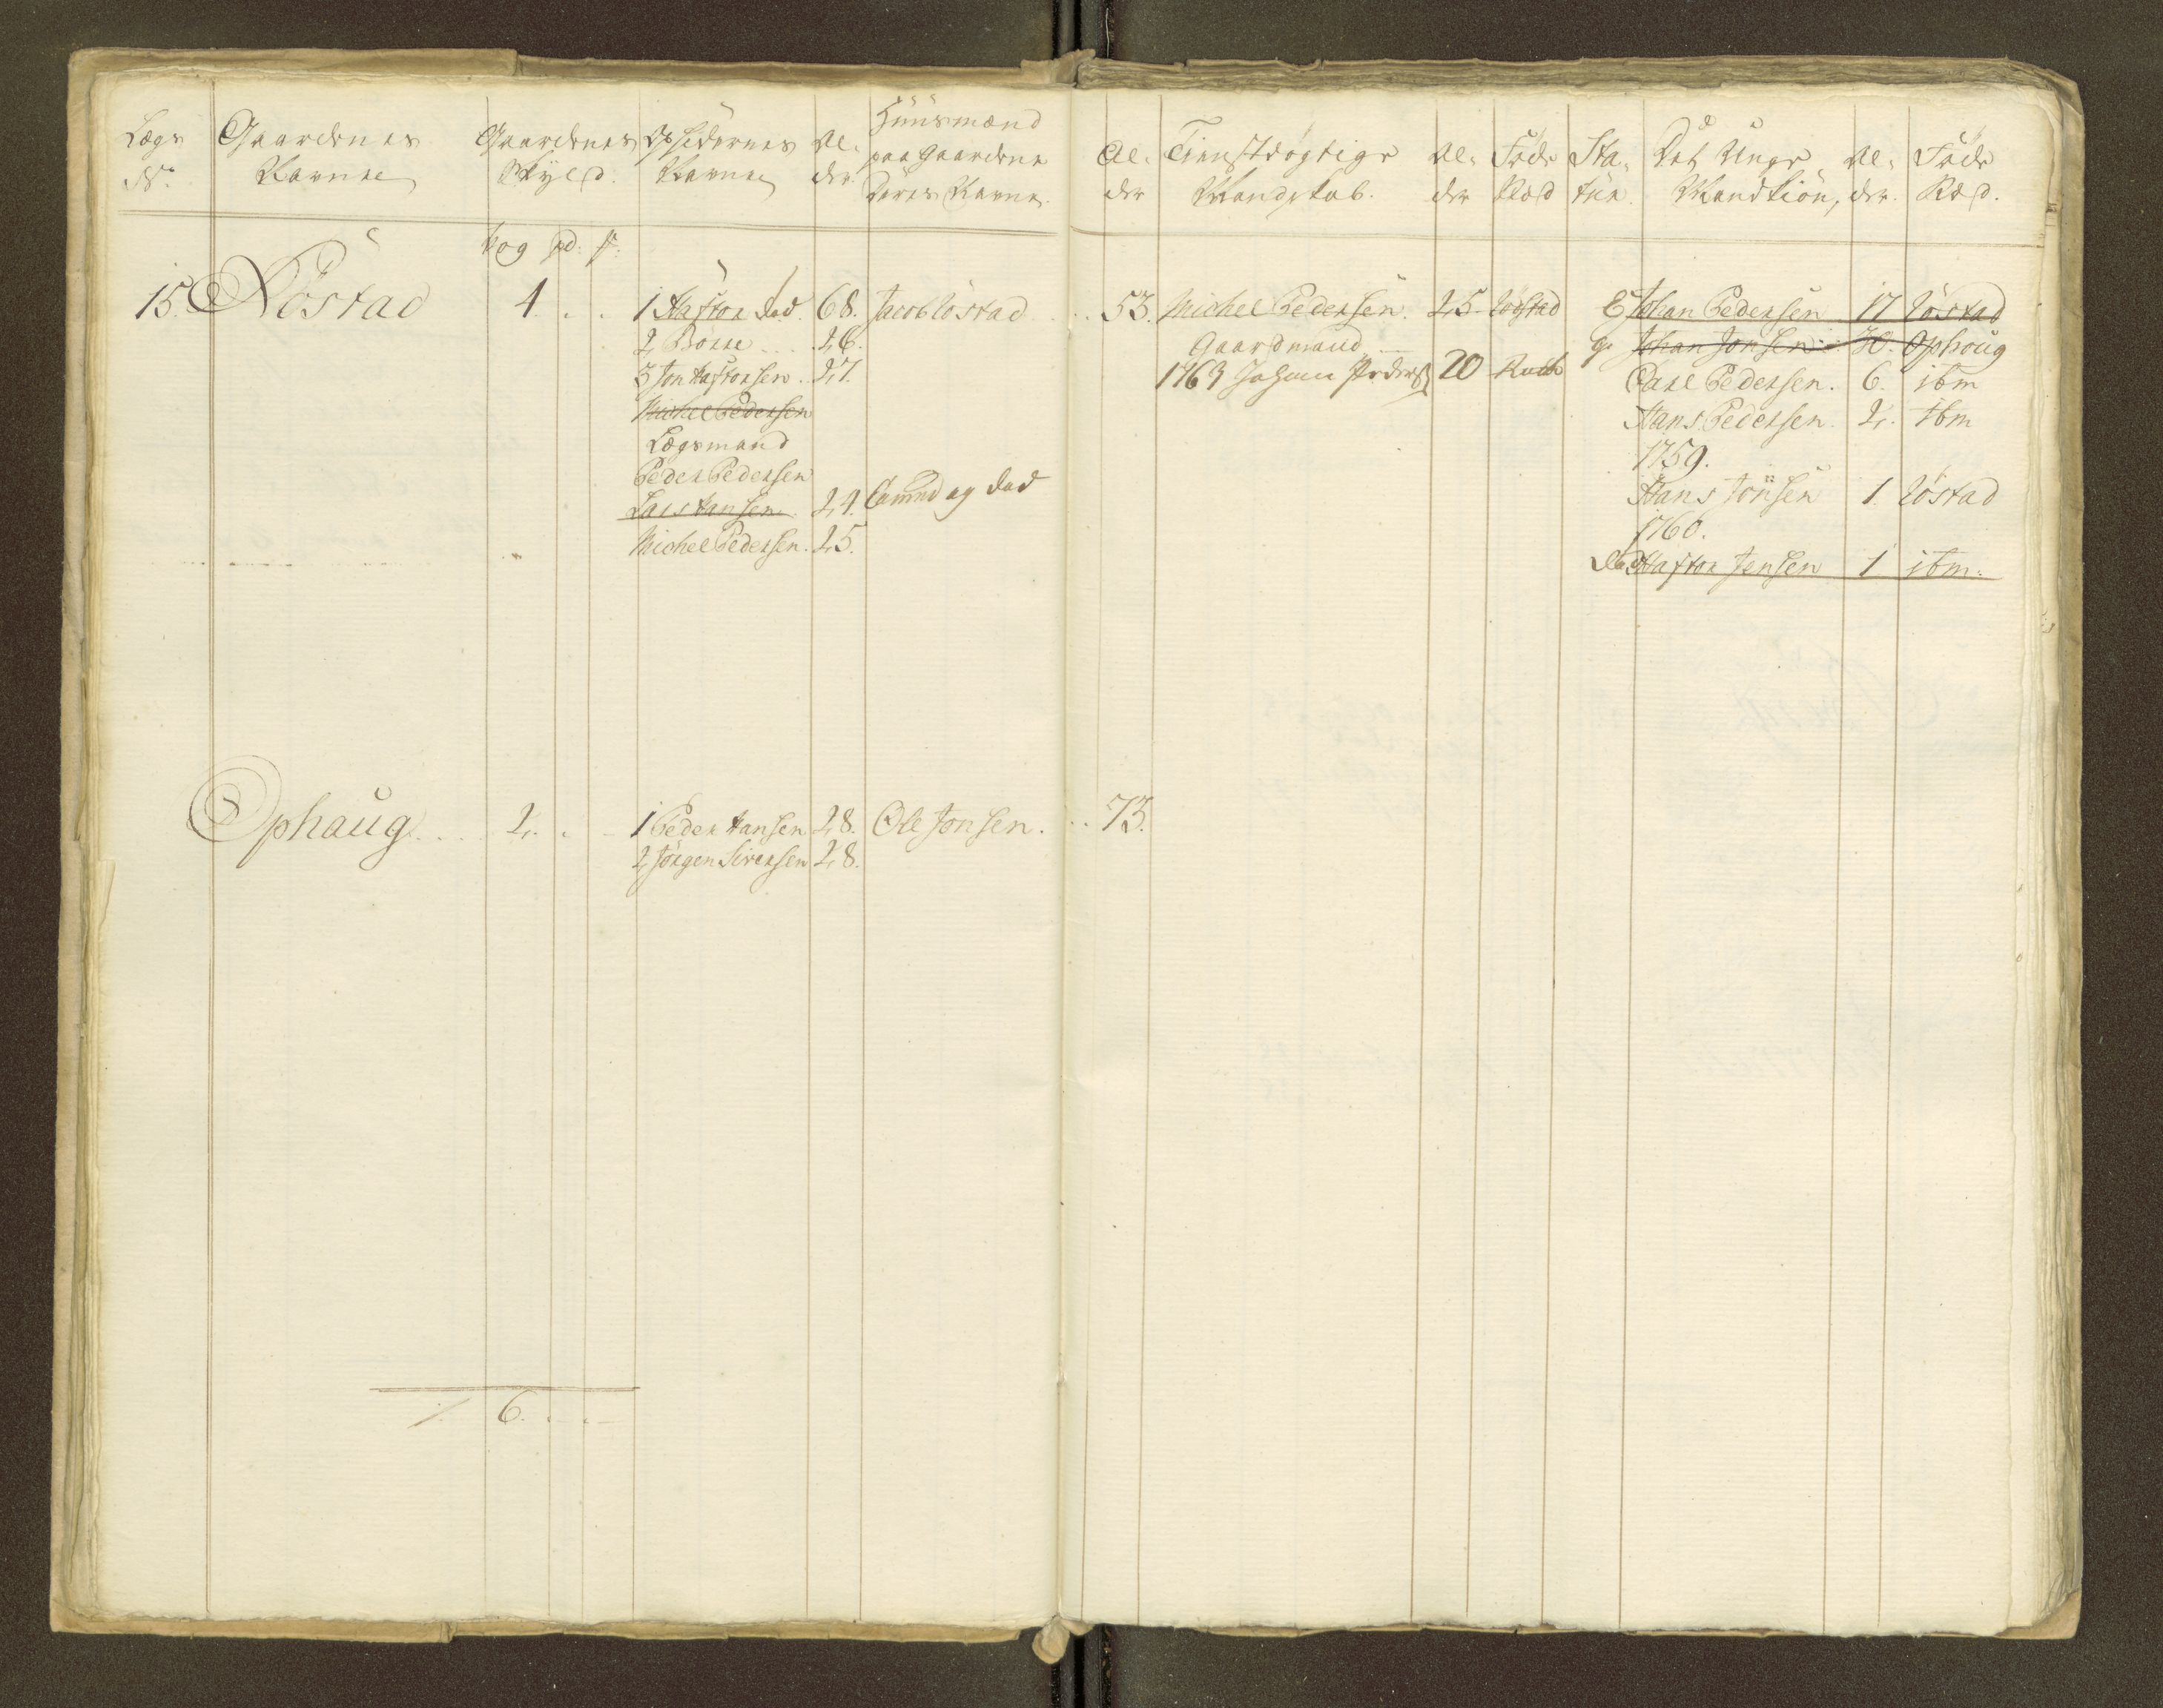 Lægs No. Gaardenes Navne Gaardenes Skyld. Opsidernes Navne Al- der. Huusmænd paa Gaardene Deres Navne.
Al- der Tienstdøgtige Mandskab. Al- der Føde Stæd Sta- tur. Det Unge Mandkiön, Al- der. Føde Stæd.
Vog pd: #:
15. Röstad 4. . . 1 Hafton død. 68. Jacob Röstad . . 53. Michel Pedersen. 25 Röstad E Johan Pedersen 17 Röstad
2 Bosse . . . 26. Gaardmand g. Johan Jonsen 30. Ophoug
3 Jon Haftorsen . . 27. 1763 Johan Peders 20 Carl Pedersen. 6. ibm
Michel Pedersen Hans Pedersen. 2. ibm
Lægsmand 1759.
Peder Pedersen Hans Jonsen 1. Röstad
Lars Hansen 24. død 1760.
Michel Pedersen. 25. død Haftor Jensen 1 ibm.
Ophaug . . . 2. . . 1 Peder Hansen 28. Ole Jonsen. . . 73.
2 Jörgen Siversen 28.
/. 6. . .